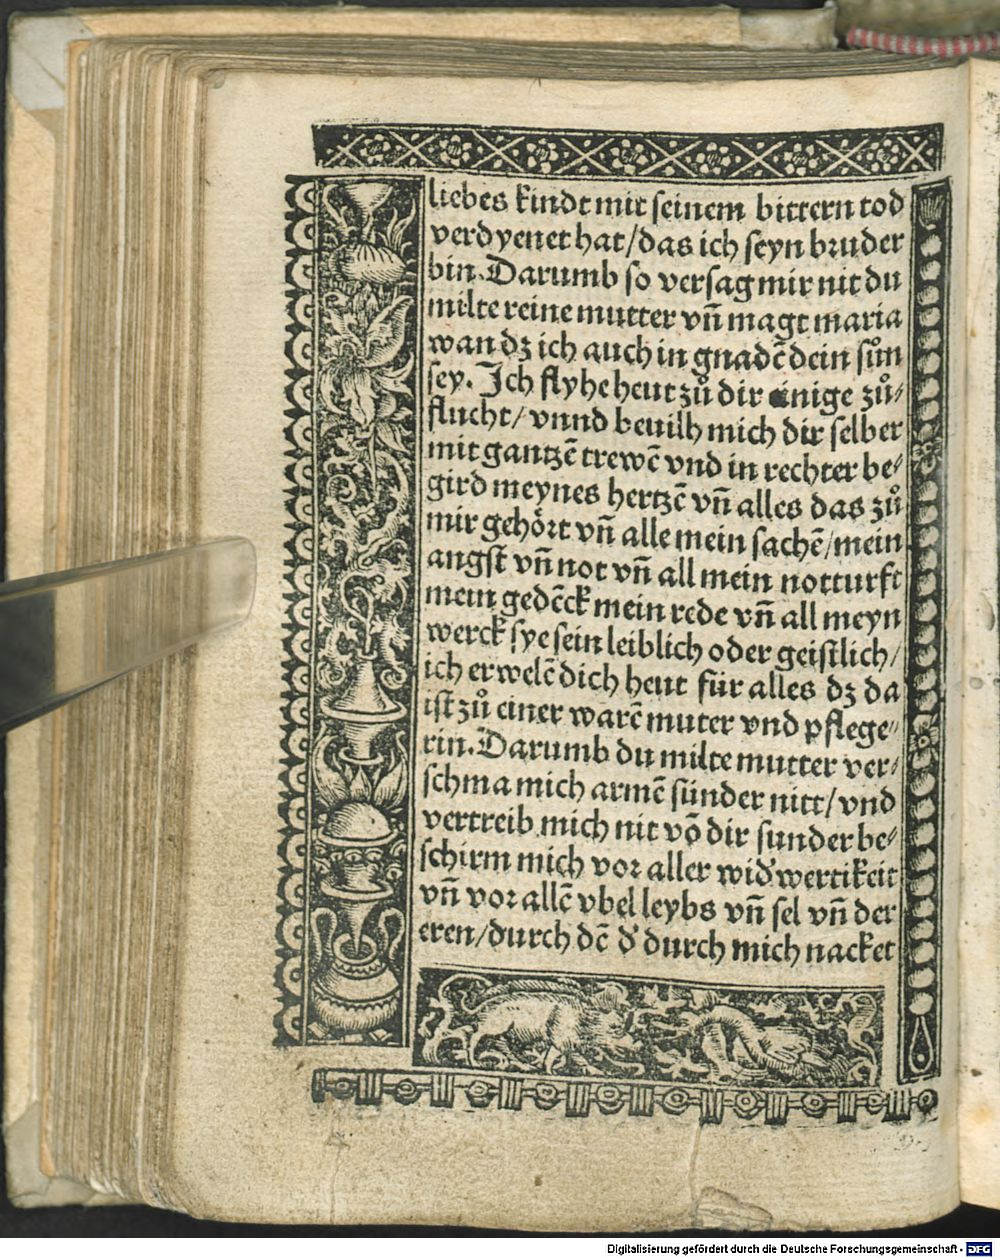 liebes kindt mit seinem bittern tod
verdyenet hat/das ich seyn bruder
bin. Darumb so versag mir nit du
milte reine mutter vñ magt maria
wan dz ich auch in gnadē dein sůn
sey. Ich flyhe heut zů dir einige zů⸗
flucht/ vnnd beuilh mich dir selber
mit gantzē trewē vnd in rechter be⸗
gird meynes hertzē vñ alles das zů
mir gehört vñ alle mein sachē/mein
angst vñ not vñ all mein notturft
mein gedēck mein rede vñ all meyn
werck sye sein leiblich oder geistlich/
ich erwelē dich heut für alles dz da
ist zů einer warē muter vnd pflege⸗
rin. Darumb du milte mutter ver⸗
schma mich armē sünder nitt/vnd
vertreib mich nit vō dir sunder be⸗
schirm mich vor aller wid̕wertikeit
vñ vor allē vbel leybs vñ sel vñ der
eren/durch dē d̕ durch mich nacket
Digitalisierung gefördert durch die Deutsche Forschungsgemeinschaft - DFG